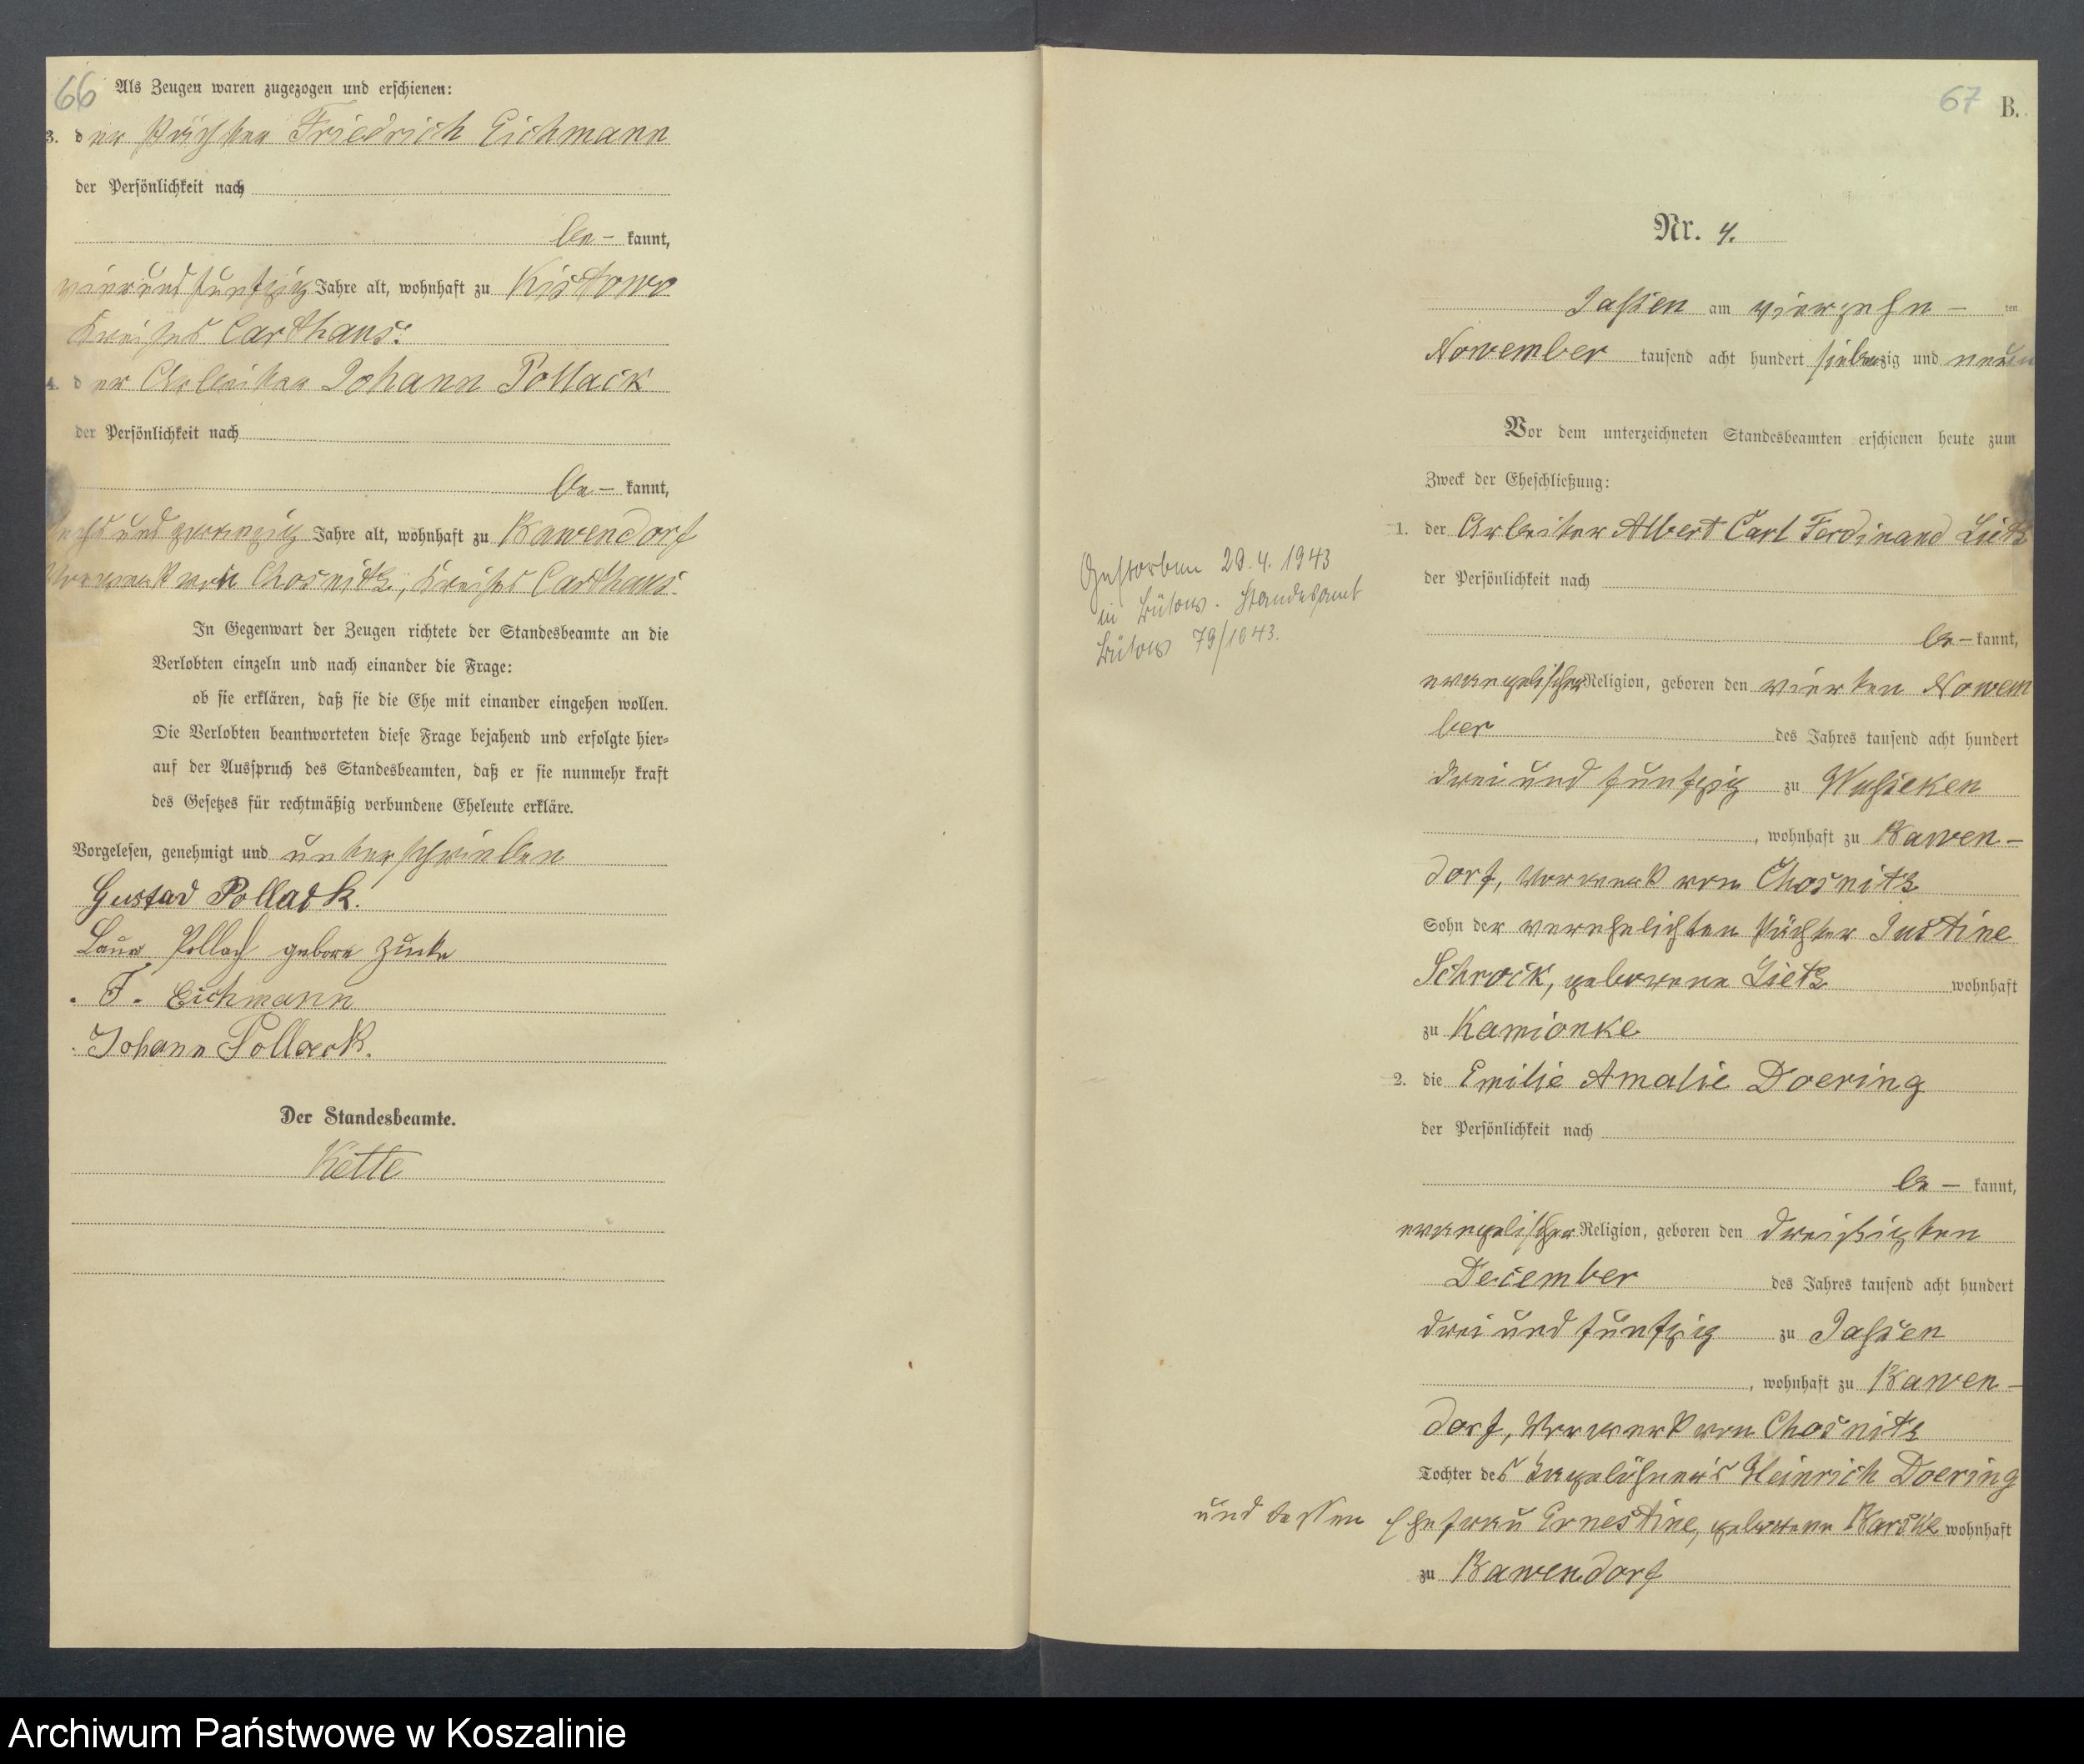 66
Als Zeugen waren zugezogen und erschienen:
3. der Pächter Friedrich Eichmann
der Persönlichkeit nach
be- kannt,
vierundfunfzig Jahre alt, wohnhaft zu Kistowo
Kreises Carthaus.
4. der Arbeiter Johann Pollack
der Persönlichkeit nach
be- kannt,
sechs und zwanzig Jahre alt, wohnhaft zu Bawendorf
Vorwerk von Chosnitz, Kreises Carthaus.
In Gegenwart der Zeugen richtete der Standesbeamte an die
Verlobten einzeln und nach einander die Frage:
ob sie erklären, daß sie die Ehe mit einander eingehen wollen.
Die Verlobten beantworteten diese Frage bejahend und erfolgte hier-
auf der Ausspruch des Standesbeamten, daß er sie nunmehr kraft
des Gesetzes für rechtmäßig verbundene Eheleute erkläre.
Vorgelesen, genehmigt und unterschrieben
Gustav Pollack.
Pollack geborn
F. Eichmann
Johann Pollack.
Der Standesbeamte.
Kette
67
B.
Nr. 4.
Jassen am vierzehn - ten
November tausend acht hundert siebenzig und neun
Vor dem unterzeichneten Standesbeamten erschienen heute zum
Zweck der Eheschließung:
1. der Arbeiter Albert Carl Ferdinand Lietz
der Persönlichkeit nach
be- kannt,
evangelischer Religion, geboren den vierten Novem
ber des Jahres tausend acht hundert
drei und funfzig zu Wusseken
, wohnhaft zu Bawen-
dorf, Vorwerk von Chosnitz
Sohn der verehelichten Pächter Justine
Schrock, geborene Lietz wohnhaft
zu Kamionke
2. die Emilie Amalie Doering
der Persönlichkeit nach
be - kannt,
evangelischer Religion, geboren den dreißigten
December des Jahres tausend acht hundert
drei und funfzig zu Jassen
, wohnhaft zu Bawen-
dorf, Vorwerk von Chosnitz
Tochter des Tagelöhner's Heinrich Doering
und dessen Ehefrau Ernestine, geborene wohnhaft
zu Bawendorf
Gestorben 29.4.1943
in Bütow. Standesamt
Bütow 79/1943.
Archiwum Państwowe w Koszalinie